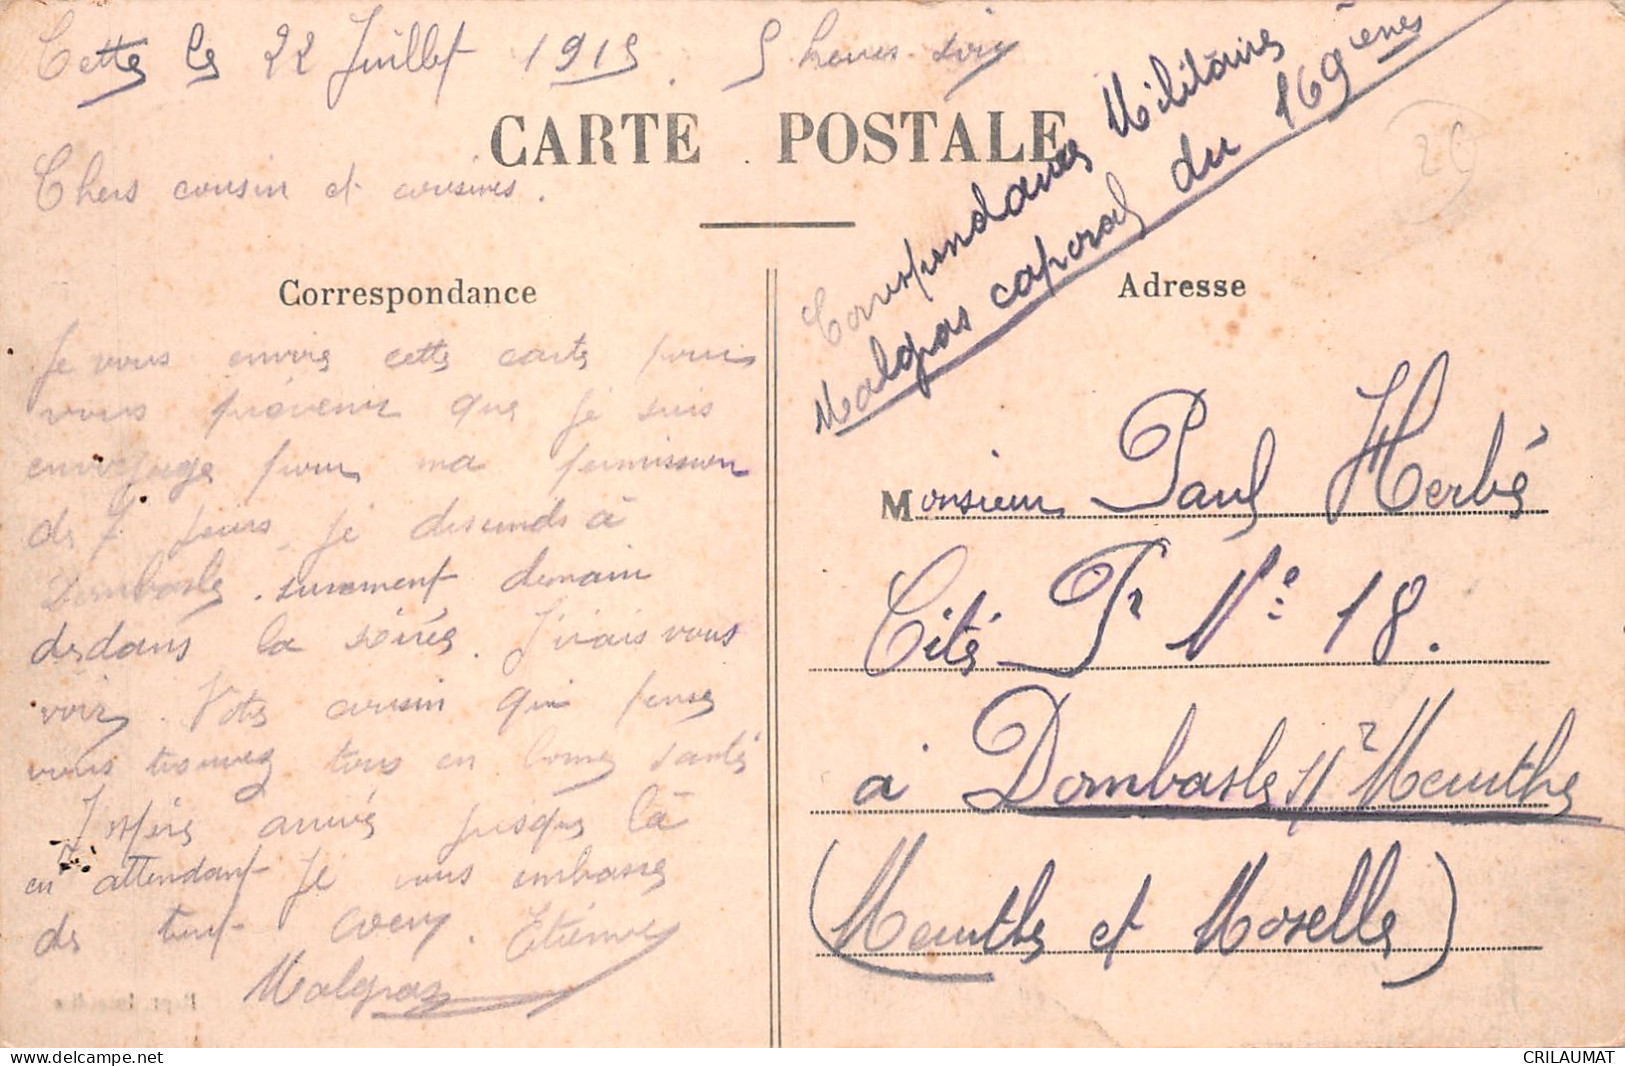 Cette le 22 Juillet 1915. 5 heures soir
CARTE POSTALE
Chers cousin et cousines.
Correspondance
Je vous envoie cette carte pour
vous prévenir que je suis
pour ma permission
de 7 jours je descends à
Dombasle. surement demain
dedans la soirée. J'irais vous
voir. Votre cousin qui pense
vous trouvez tous en bonne santé
J'espère arrivé jusque là
en attendant je vous embrasse
de tout coeur. Etienne
Malgras
Correspondances Militaires
Malgras caporal du 169ième
26
Adresse
Monsieur Paul Herbé
Cité Pr N° 18.
à Dombasle s/r Meurthe
(Meurthe et Moselle)
CRILAUMAT
www.delcampe.net